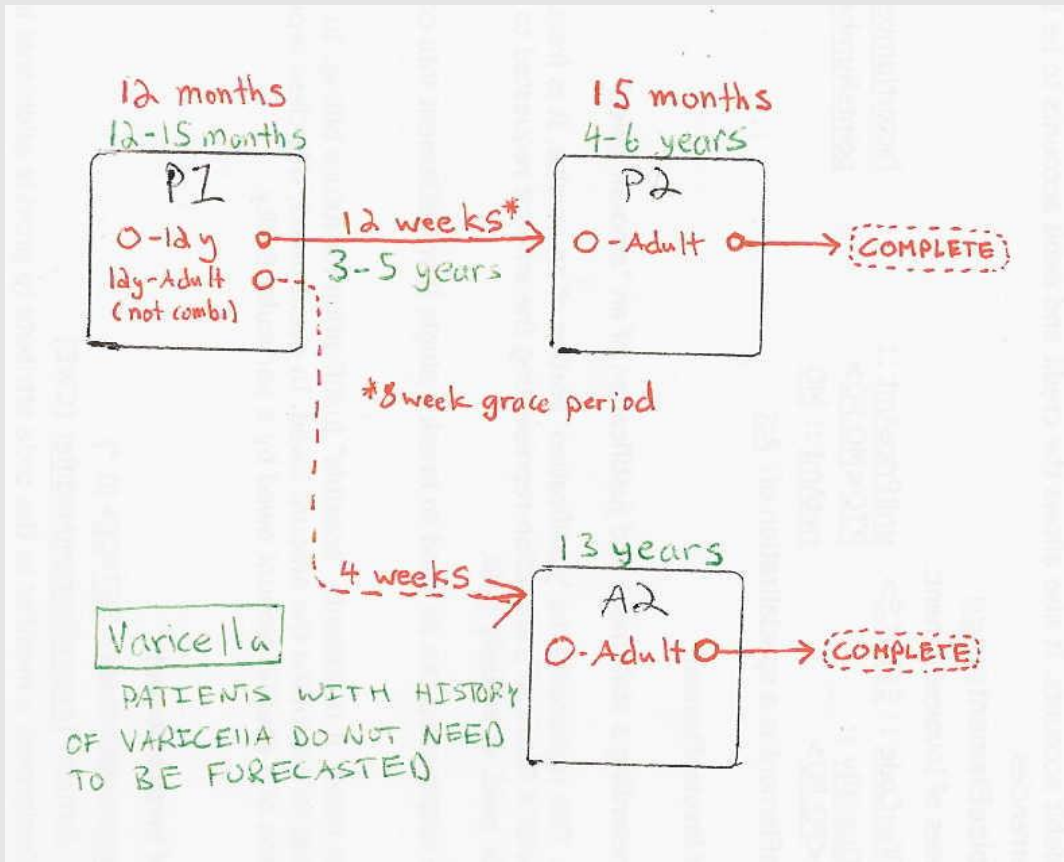 12 months
12-15 months
P1
0-12y
12y-Adult
(not combi)
12 weeks*
3-5 years
15 months
4-6 years
P2
0-Adult
COMPLETE
*8 week grace period
4 weeks
13 years
A2
0-Adult
COMPLETE
Varicella
PATIENTS WITH HISTORY
OF VARICEllA DO NOT NEED
TO BE FORECASTED